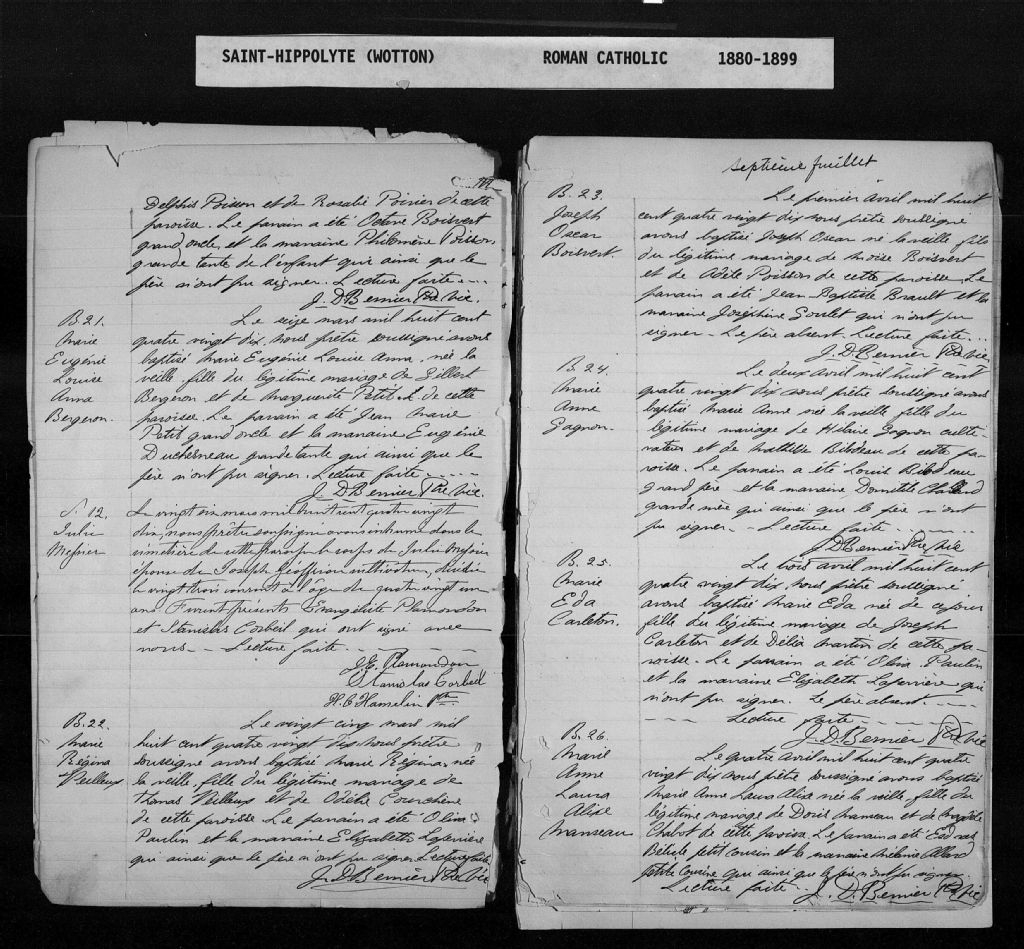 SAINT-HIPPOLYTE (WOTTON) ROMAN CATHOLIC 1880-1899
Delphis Poisson et de Rosalie Poirier de cette
paroisse. Le parrain a été Octave Boisvert
grand oncle, et la marraine Philomène Poisson
grande tante de l'enfant qui ainsi que le
père n'ont pu signer. Lecture faite
J. D. Bernier Ptre Vic.
B 21.
Marie
Eugénie
Louise
Anna
Bergeron.
Le seize mars mil huit cent
quatre vingt dix, nous prêtre soussigné avons
baptisé Marie Eugénie Louise Anna, née la
veille fille du légitime mariage de Gilbert
Bergeron et de Marguerite Petit de cette
paroisse. Le parrain a été Jean Marie
Petit grand oncle et la marraine Eugénie
Duchesneau grande tante qui ainsi que le
père n'ont pu signer. Lecture faite
J. D. Bernier Ptre Vic.
S. 12.
Julie
Messier
Le vingt six mars mil huit cent quatre vingt
dix, nous prêtre soussigné avons inhumé dans le
cimetière de cette paroisse le corps de Julie Messier
épouse de Joseph Geoffrion cultivateur, décédée
le vingt trois courant à l'âge de quatre vingt un
ans. Furent présents Evangéliste Plamondon
et Stanislas Corbeil qui ont signé avec
nous. Lecture faite
J. E. Plamondon
Stanislas Corbeil
H. C. Hamelin Ptre
B. 22.
Marie
Régina
Veilleux
Le vingt cinq mars mil
huit cent quatre vingt dix nous prêtre
soussigné avons baptisé Marie Régina, née
la veille, fille du légitime mariage de
Thomas Veilleux et de Odélie Courchène
de cette paroisse. Le parrain a été Oliva
Paulin et la marraine Elizabeth Laferrière
qui ainsi que le père n'ont pu signer. Lecture faite
J. D. Bernier Ptre Vic
septième feuillet
B. 23.
Joseph
Oscar
Boisvert.
Le premier avril mil huit
cent quatre vingt dix nous prêtre soussigné
avons baptisé Joseph Oscar né la veille fils
du légitime mariage de Moïse Boisvert
et de Odile Poisson de cette paroisse. Le
parrain a été Jean Baptiste Brault et la
marraine Joséphine Goulet qui n'ont pu
signer. Le père absent. Lecture faite.
J. D. Bernier Ptre Vic
B. 24.
Marie
Anne
Gagnon.
Le deux avril mil huit cent
quatre vingt dix nous prêtre soussigné avons
baptisé Marie Anne née la veille, fille du
légitime mariage de Hilaire Gagnon culti-
vateur et de Mathilde Bilodeau de cette pa-
roisse. Le parrain a été Louis Bilodeau
grand père et la marraine Domitile
grande mère qui ainsi que le père n'ont
pu signer. Lecture faite
J. D. Bernier Ptre Vic
B. 25.
Marie
Eda
Carleton.
Le trois avril mil huit cent
quatre vingt dix nous prêtre soussigné
avons baptisé Marie Eda née de ce jour
fille du légitime mariage de Joseph
Carleton et de Délia Martin de cette pa-
roisse. Le parrain a été Oliva Paulin
et la marraine Elizabeth Laferrière qui
n'ont pu signer. Le père absent.
Lecture faite
J. D. Bernier Ptre Vic
B. 26.
Marie
Anne
Laura
Alise
Manseau
Le quatre avril mil huit cent quatre
vingt dix nous prêtre soussigné avons baptisé
Marie Anne Laura Alise née la veille, fille du
légitime mariage de Manseau et de
Chabot de cette paroisse. Le parrain a été Esdras
petit cousin et la marraine Mélanie Allard
petite cousine qui ainsi que le père n'ont pu signer.
Lecture faite. J. D. Bernier Ptre Vic